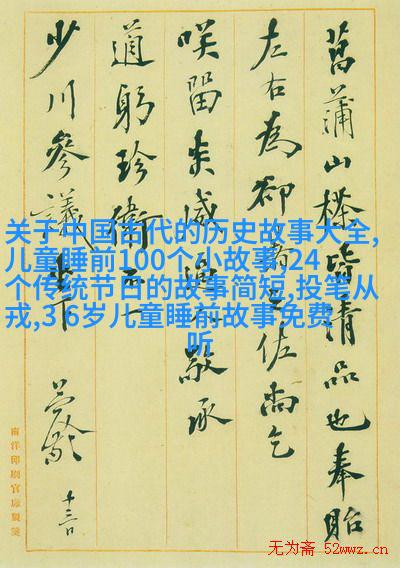 关于中国古代的历史故事大全,
儿童睡前100个小故事,24
个传统节日的故事简短,投笔从
戎,3 6岁儿童睡前故事免费
听
菖蒲山皆清品也奉貽
左右為卻暑之佐尚乞
咲留炎威敬承
適躬珍衛不一
少川參議下
十三日
南洋印刷官廠製箋
无为斋 52wwz.cn